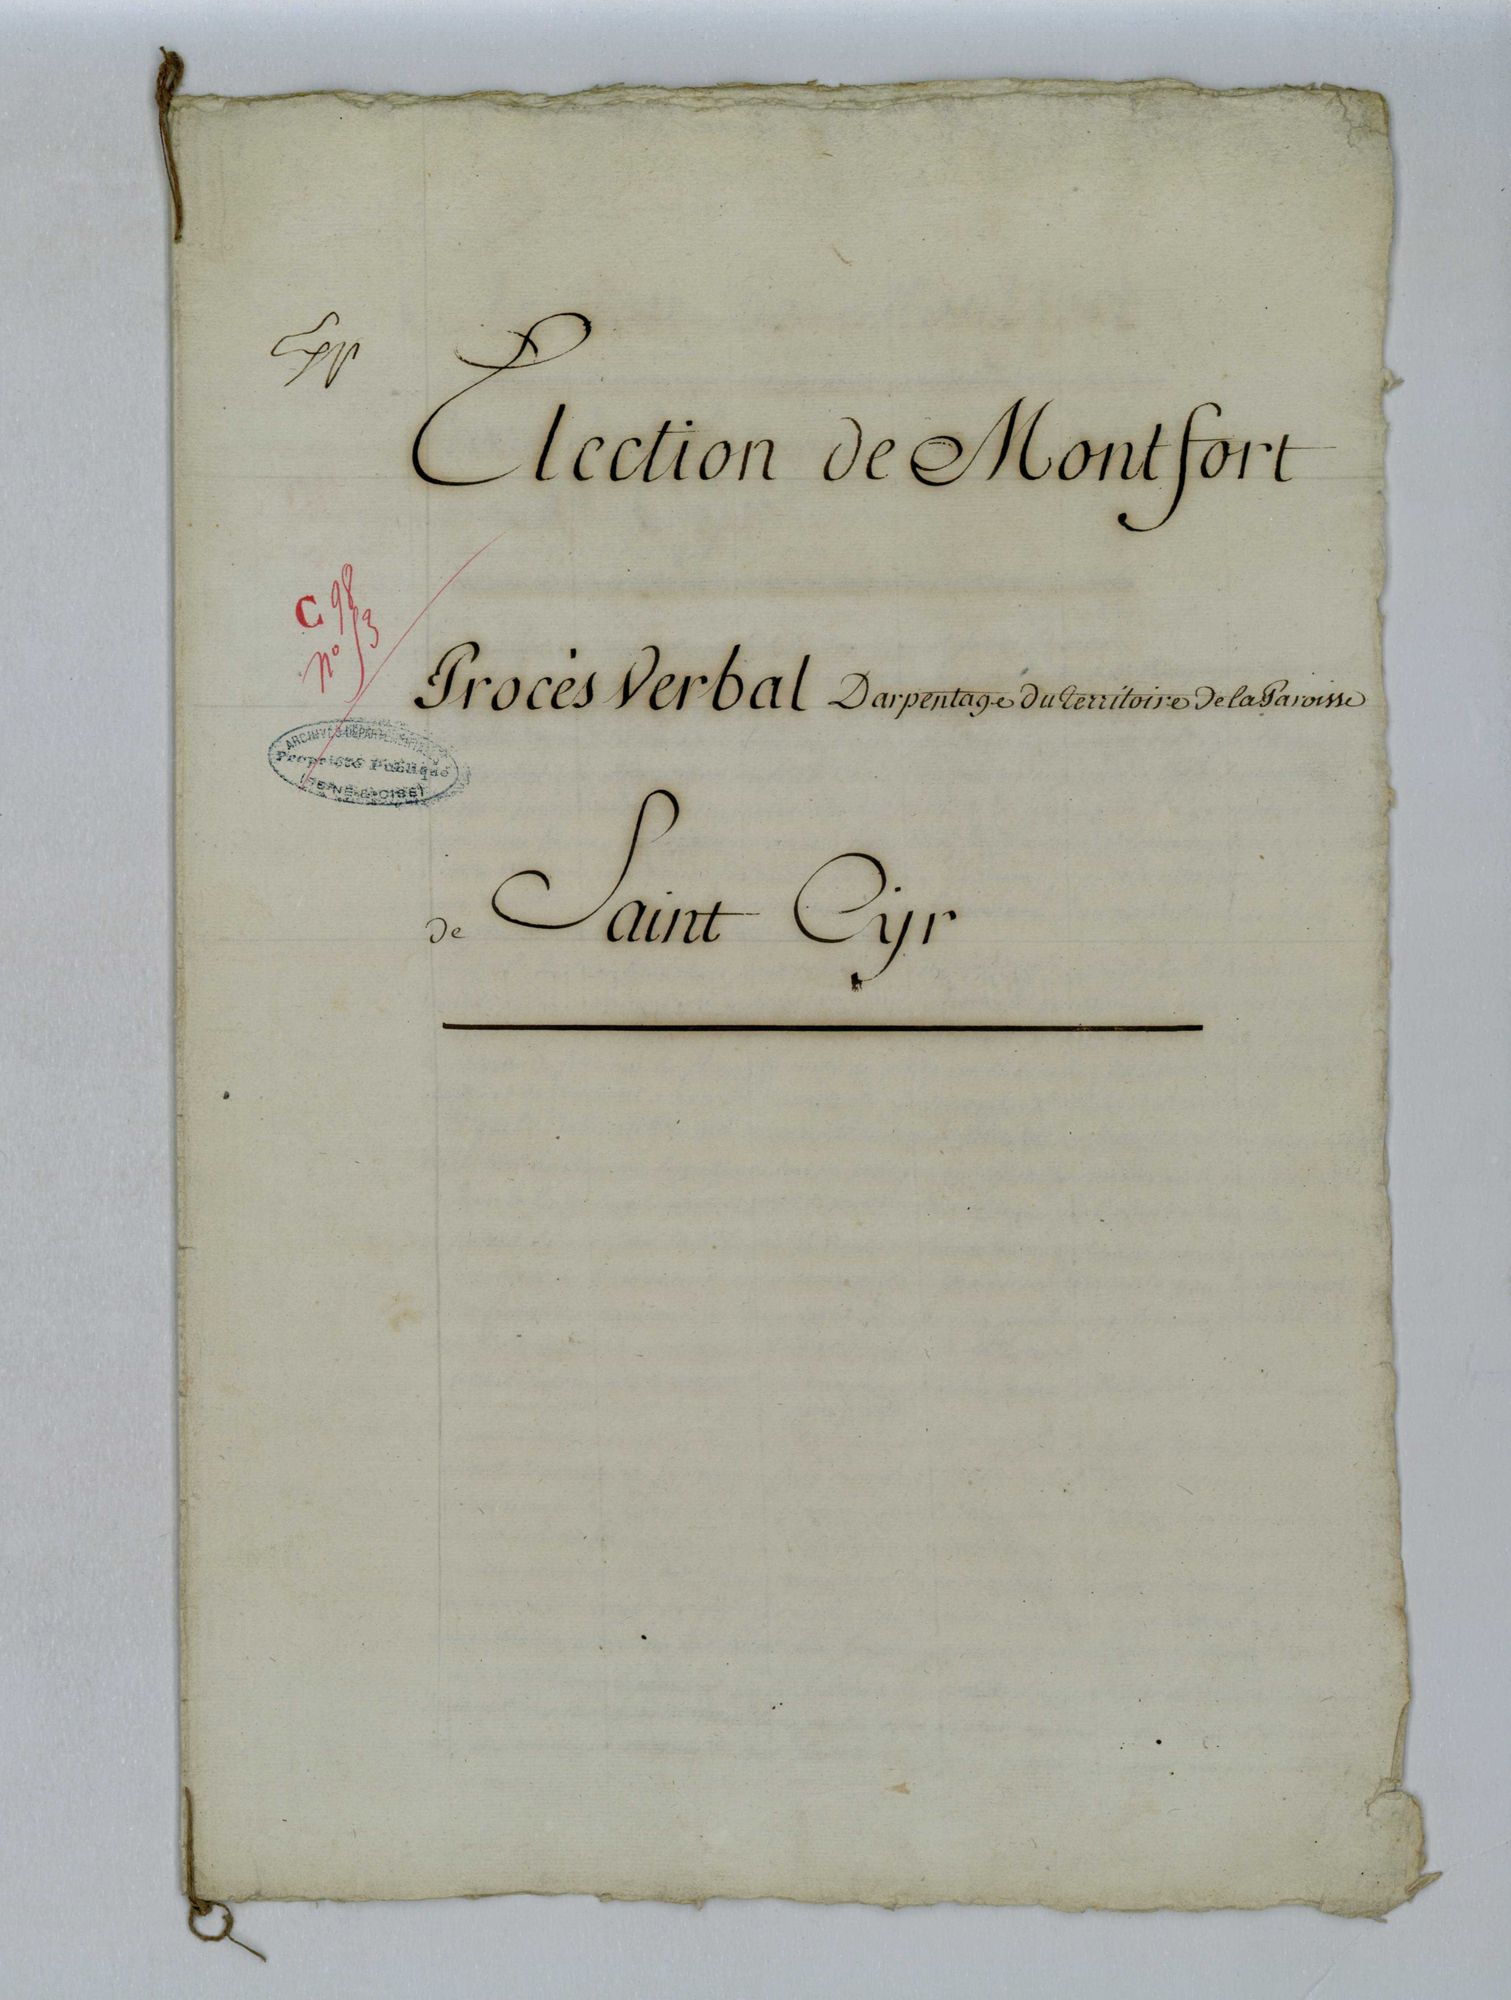 Election de Montfort
C 98
n° 53
Procès Verbal Darpentage du territoire de la Paroisse
ARCHIVES DÉPARTEMENTALES
Propriété Publique
(SEINE-&-OISE)
de Saint Cyr